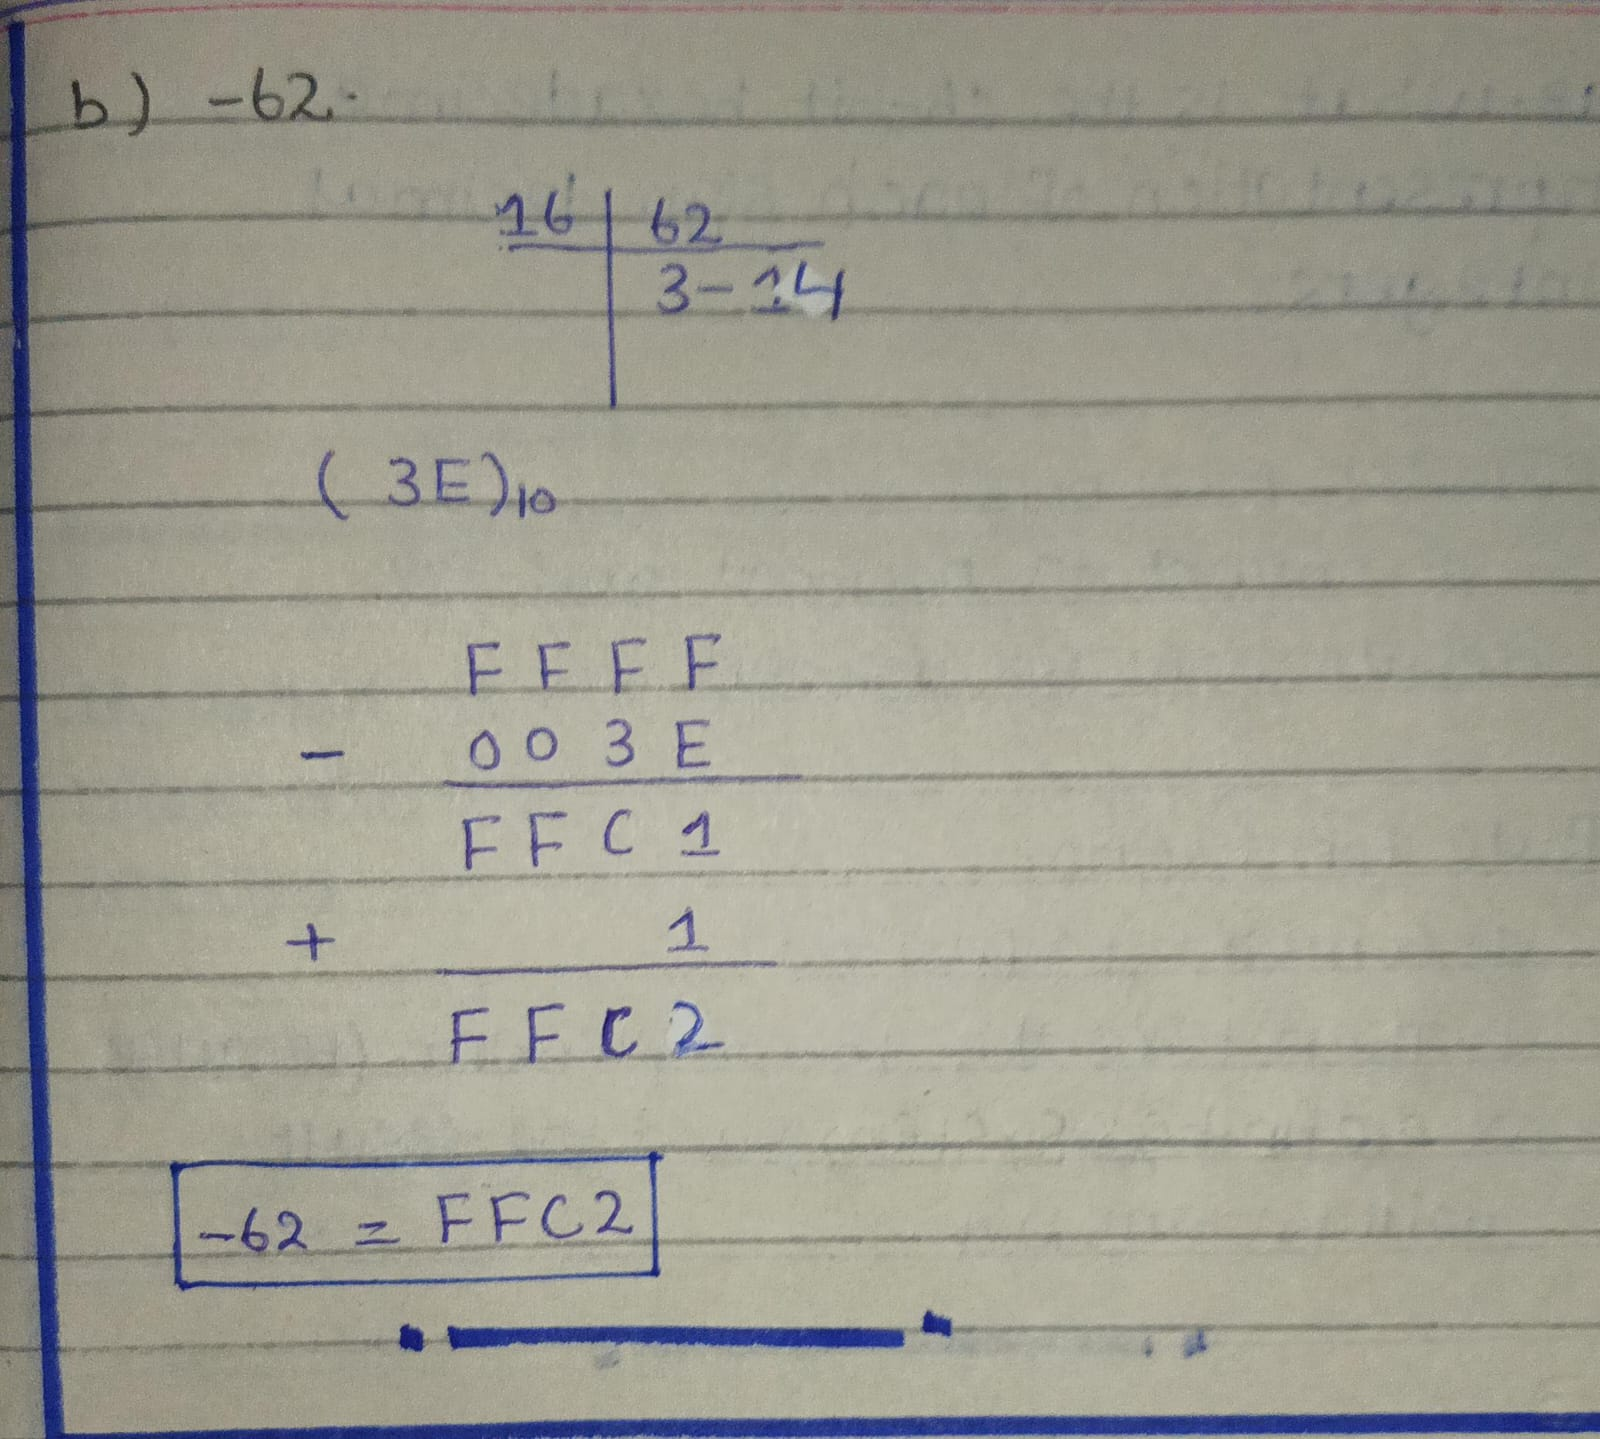 b) -62.
16 | 62
3-14
( 3E)10
F F F F
- 0 0 3 E
F F C 1
+ 1
F F C 2
-62 = FFC2